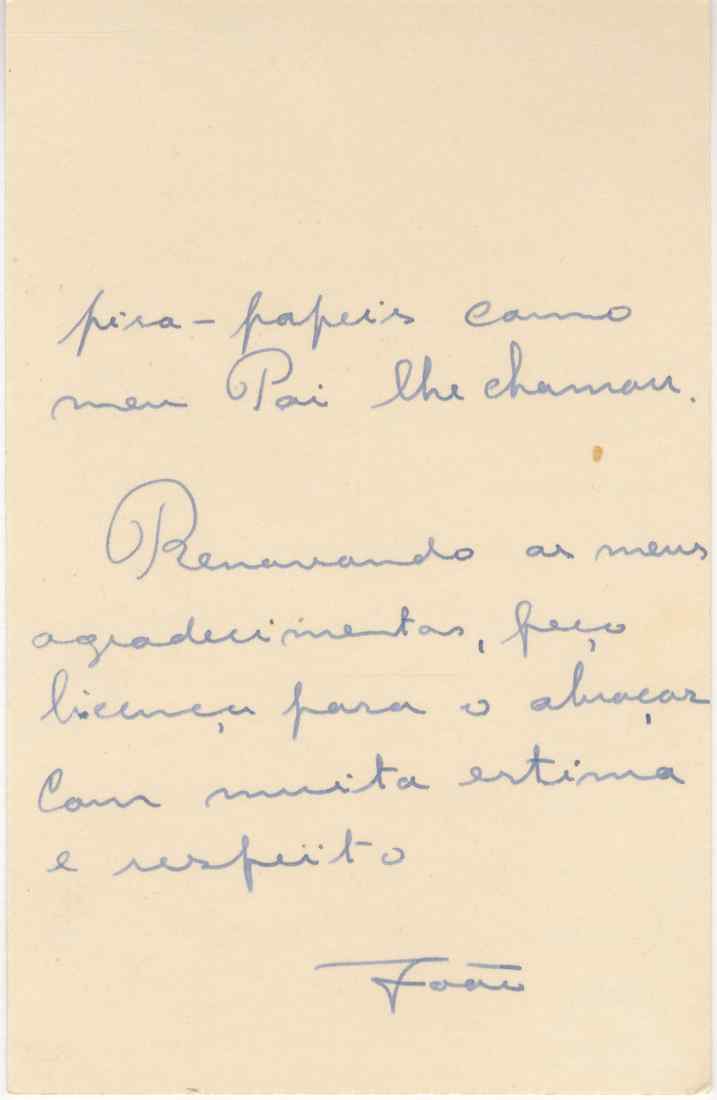 pisa-papeis como
meu Pai lhe chamou.
Renovando os meus
agradecimentos, peço
licença para o abraçar
com muita estima
e respeito
João